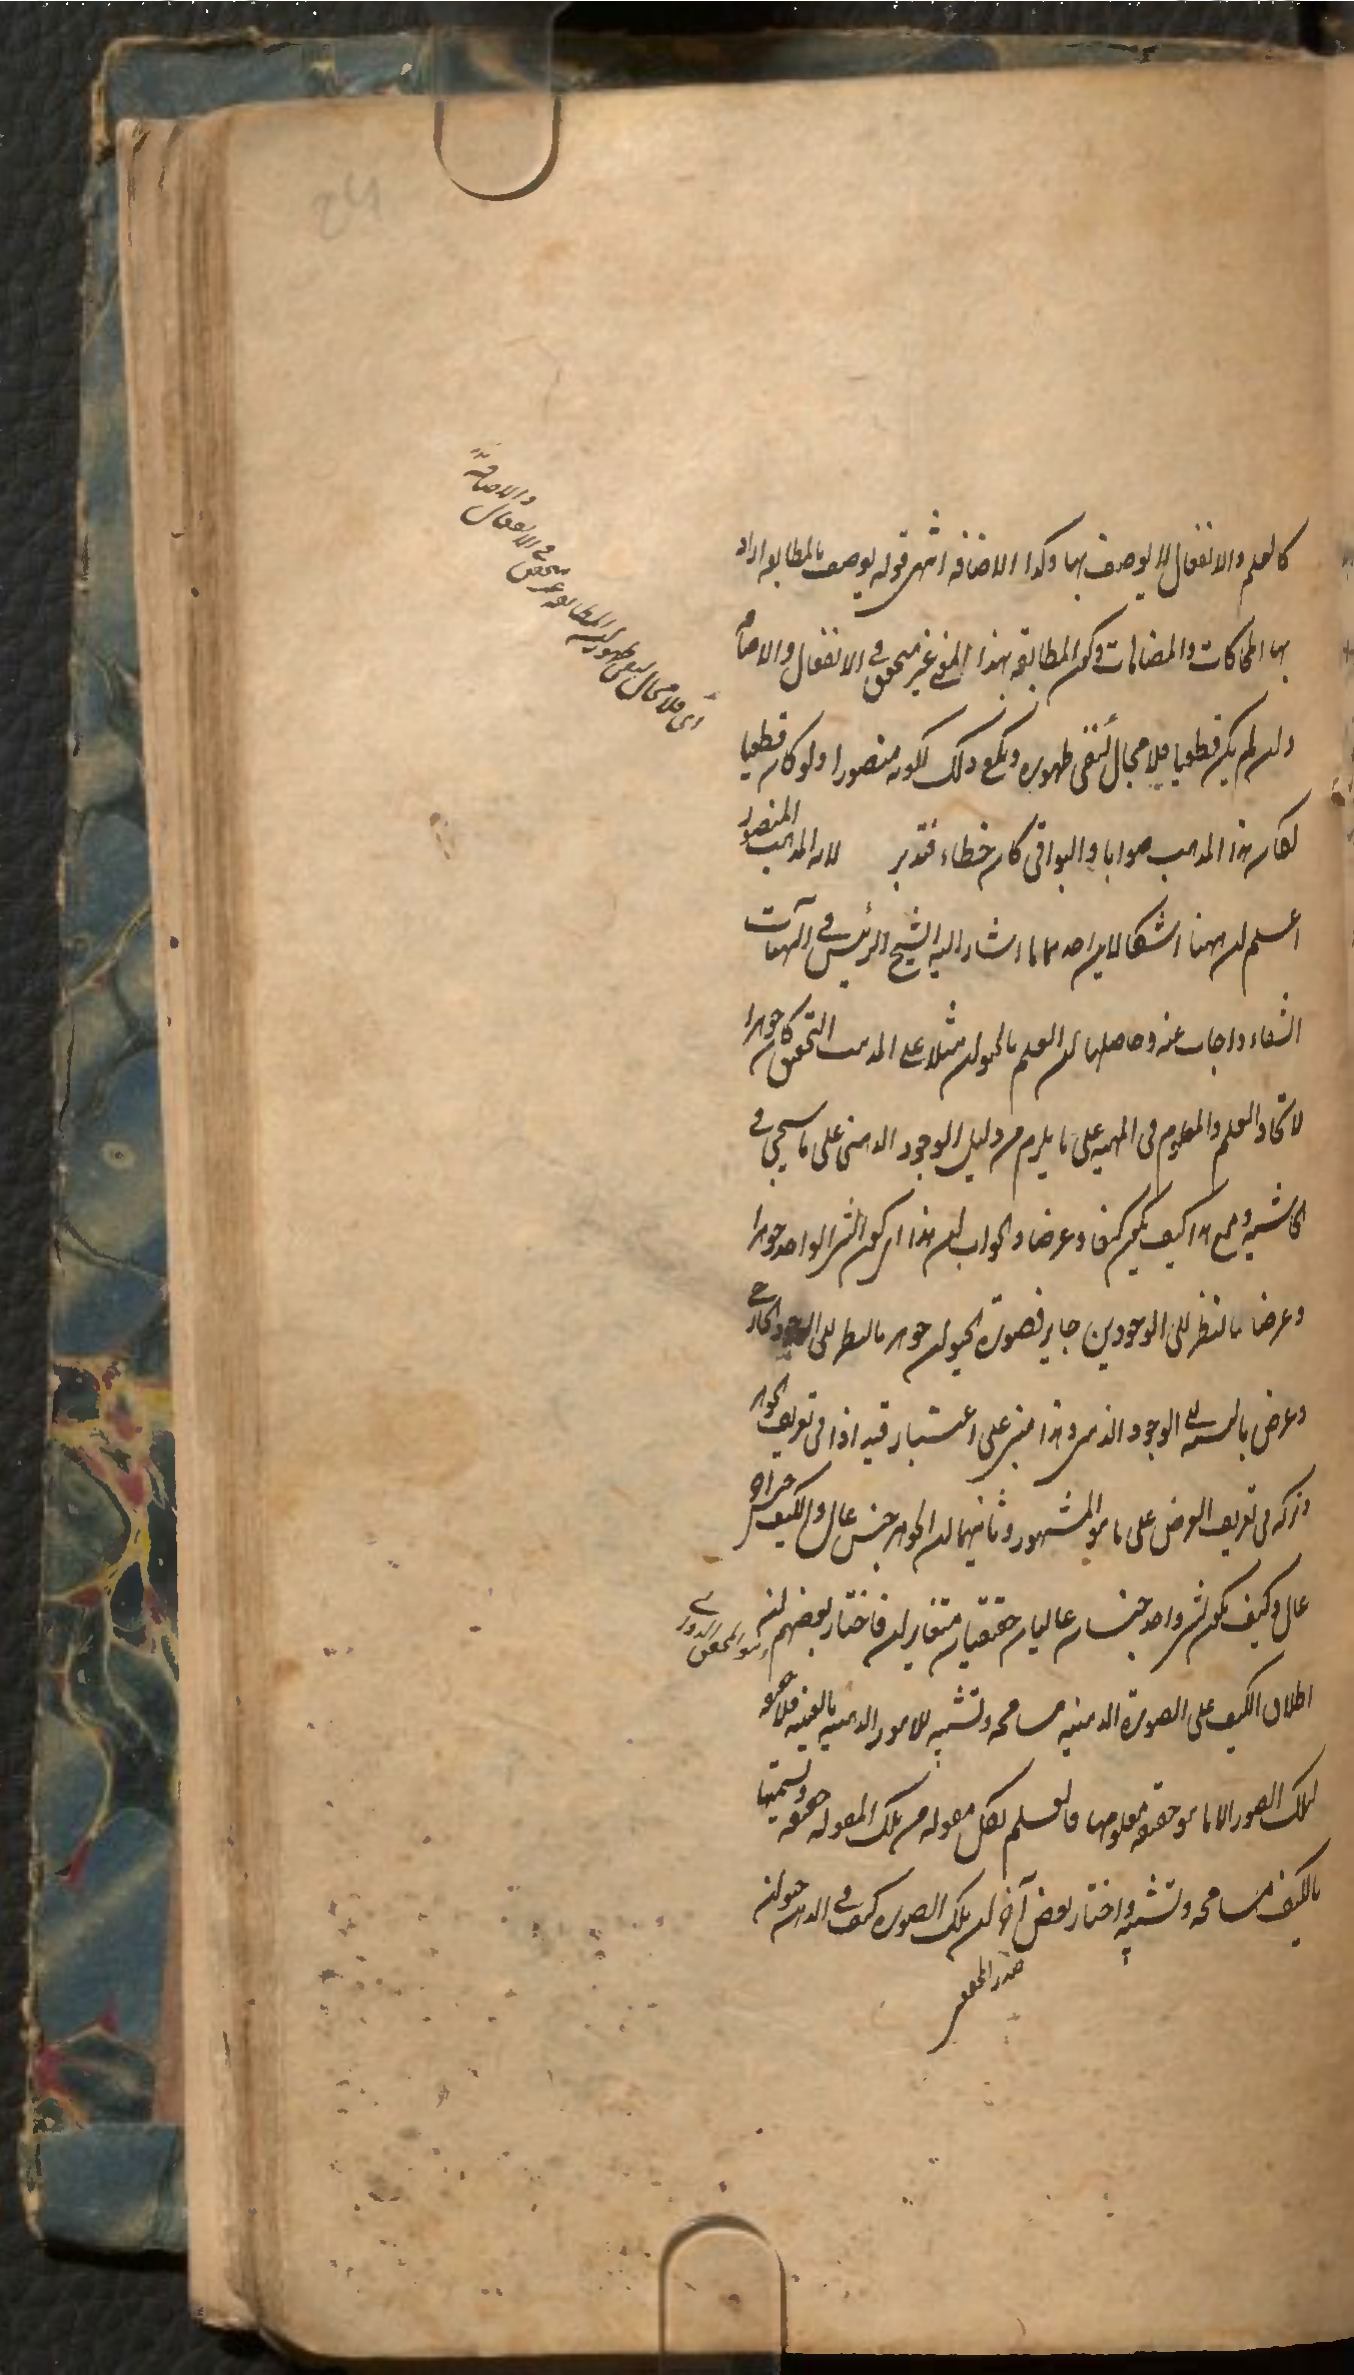 كالعلم والانفعال لا يوصف بها وكذا الاضافة انتهى قوله يوصف بالمطابقة اراد
بها المحاكات والمضاهات وكون المطابقة بهذا المعنى غير متحقق في الانفعال والاضافة
وان لم يكن قطعيا فلا مجال لنفى ظهوره ويكفى ذلك لكونه منصورا ولو كان قطعيا
لكان هذا المذهب صوابا والبواقى كان خطاء فتدبر لان المذهب المنصور
اعلم ان ههنا اشكالان احدهما ما اشار اليه الشيخ الرئيس في الهيات
الشفاء واجاب عنه وحاصلها ان العلم بالحيوان مثلا على المذهب التحقيق كان جوهرا
لاتحاد العلم والمعلوم فى المهية على ما يلزم من دليل الوجود الذهنى على ما سيجئ في
الحاشية ومع هذا كيف يكون كيفا وعرضا والجواب ان هذا اى كون الشئ الواحد جوهرا
وعرضا بالنظر الى الوجودين جايز فصورة الحيوان جوهر بالنظر الى الوجود الخارجى
وعرض بالنسبة الى الوجود الذهنى وهذا مبنى على اعتبار قيد اذا فى تعريف الجوهر
وتركه فى تعريف العرض على ما هو المشهور وثانيهما ان الجوهر جنس عال والكيف جنس
عال وكيف يكون لشئ واحد جنسان عاليان حقيقيان متغايران فاختار بعضهم ان
وهو المحقق الدوانى
اطلاق الكيف على الصورة الذهنية مسامحة وتشبيه للامور الذهنية بالعينية فلا حقيقة
لتلك الصور الا ما هو حقيقة معلومها فالعلم بكل مقولة من تلك المقولة حقيقة وتسميتها
بالكيف مسامحة وتشبيه واختار بعض آخر ان تلك الصورة كيف في الذهن حيوان
صدر المحققين
اى فلا مجال لنفى ظهور كون المطابقة غير متحقق
في الانفعال
والاضافة